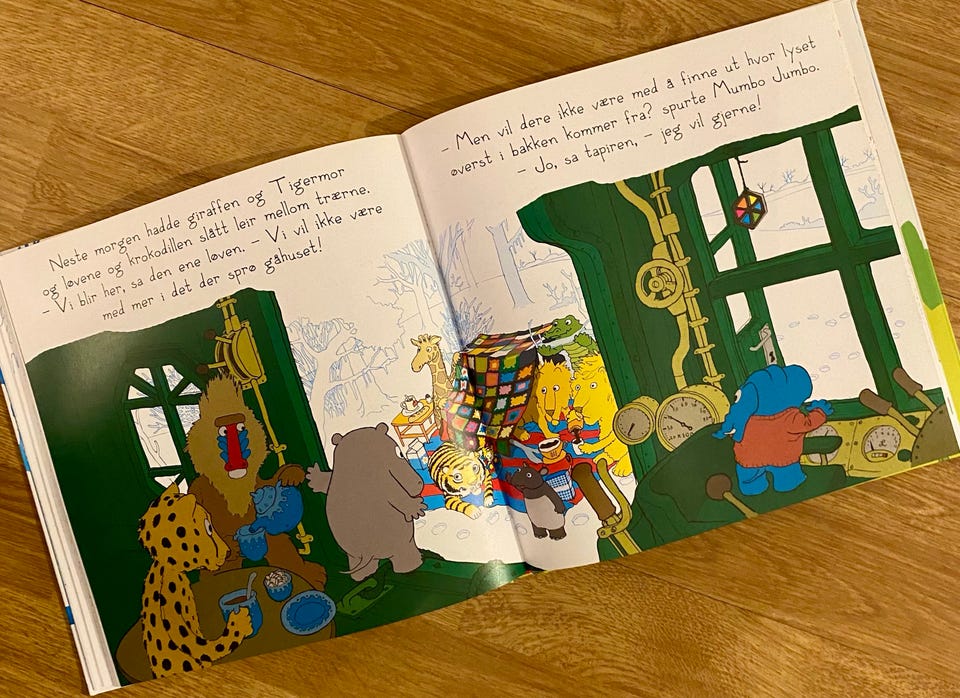 Neste morgen hadde giraffen og Tigermor
og løvene og krokodillen slått leir mellom trærne.
- Vi blir her, sa den ene løven. - Vi vil ikke være
med mer i det der sprø gåhuset!
- Men vil dere ikke være med å finne ut hvor lyset
øverst i bakken kommer fra? spurte Mumbo Jumbo.
- Jo, sa tapiren, - jeg vil gjerne!